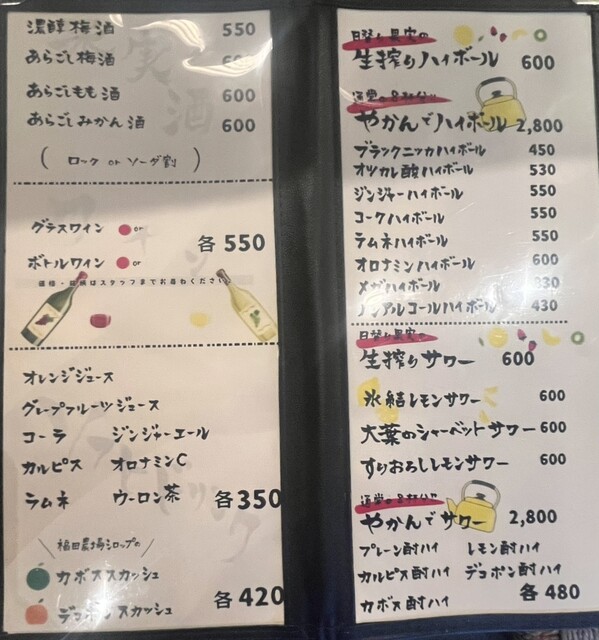 果実酒
濃醇梅酒 550
あらごし梅酒 600
あらごしもも酒 600
あらごしみかん酒 600
(ロック or ソーダ割)
ワイン
グラスワイン or
各550
ボトルワイン or
価格・銘柄はスタッフまでお尋ねください
ソフトドリンク
オレンジジュース
グレープフルーツジュース
コーラ ジンジャーエール
カルピス オロナミンC
ラムネ ウーロン茶 各350
福田農場シロップの
カボススカッシュ
デコポンスカッシュ 各420
日替り果実の
生搾りハイボール 600
通常の8杯分!!
やかんでハイボール 2,800
ブラックニッカハイボール 450
オツカレ酸ハイボール 530
ジンジャーハイボール 550
コークハイボール 550
ラムネハイボール 550
オロナミンハイボール 600
メガハイボール 830
ノンアルコールハイボール 430
日替り果実の
生搾りサワー 600
氷結レモンサワー 600
大葉のシャーベットサワー 600
すりおろしレモンサワー 600
通常の8杯分!!
やかんでサワー 2,800
プレーン酎ハイ レモン酎ハイ
カルピス酎ハイ デコポン酎ハイ
カボス酎ハイ 各480